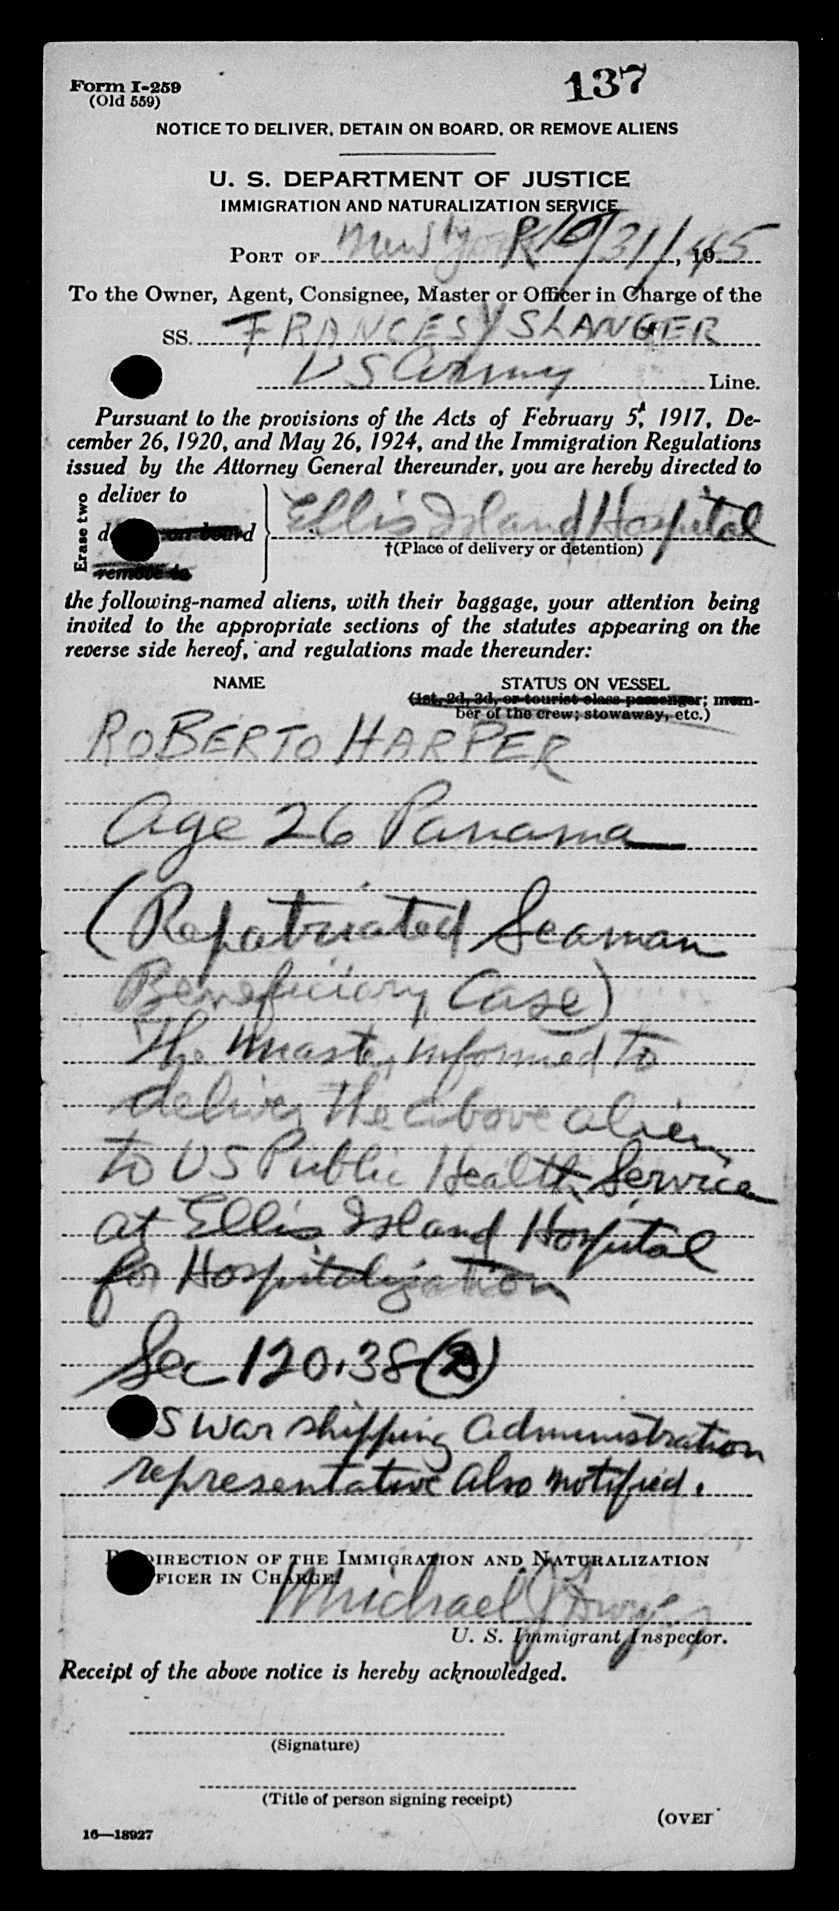 Form I-259
(Old 559)
137
NOTICE TO DELIVER, DETAIN ON BOARD, OR REMOVE ALIENS
U. S. DEPARTMENT OF JUSTICE
IMMIGRATION AND NATURALIZATION SERVICE
PORT OF New York 10/31/, 1945
To the Owner, Agent, Consignee, Master or Officer in Charge of the
SS. FRANCES Y SLANGER
US Army Line.
Pursuant to the provisions of the Acts of February 5, 1917, De-
cember 26, 1920, and May 26, 1924, and the Immigration Regulations
issued by the Attorney General thereunder, you are hereby directed to
Erase two
deliver to
on board
remove to
Ellis Island Hospital
†(Place of delivery or detention)
the following-named aliens, with their baggage, your attention being
invited to the appropriate sections of the statutes appearing on the
reverse side hereof, and regulations made thereunder:
NAME STATUS ON VESSEL
(1st, 2d, 3d, or tourist class passenger; mem-
ber of the crew; stowaway, etc.)
ROBERTO HARPER
Age 26 Panama
(Repatriated Seaman
Beneficiary Case)
The Master informed to
deliver the above alien
to US Public Health Service
at Ellis Island Hospital
for Hospitalization
Sec 120.38
S War shipping administration
representative also notified.
DIRECTION OF THE IMMIGRATION AND NATURALIZATION
FICER IN CHARGE:
Michael J
U. S. Immigrant Inspector.
Receipt of the above notice is hereby acknowledged.
(Signature)
(Title of person signing receipt)
(OVER
16—18927